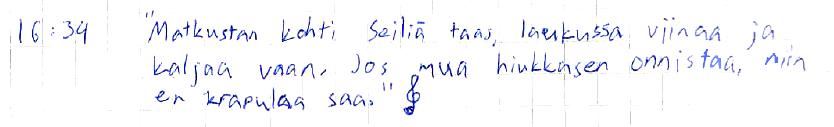 16:34 "Matkustan kohti Seiliä taas, laukussa viinaa ja
kaljaa vaan. Jos mua hiukkasen onnistaa, niin
en krapulaa saa."